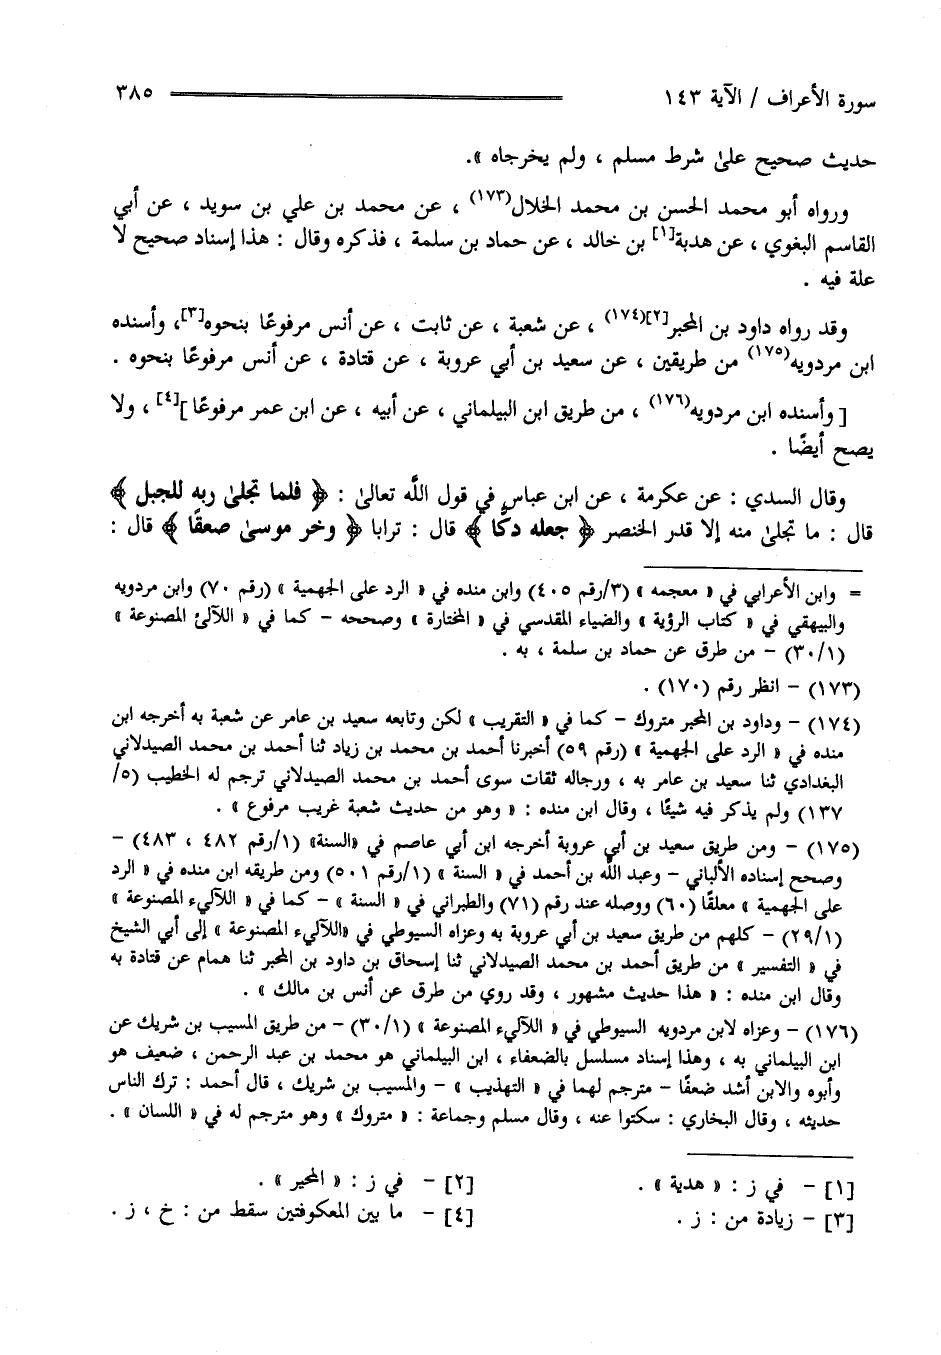 سورة الأعراف / الآية ١٤٣ ٣٨٥
حديث صحيح على شرط مسلم ، ولم يخرجاه ».
ورواه أبو محمد الحسن بن محمد الخلال(١٧٣) ، عن محمد بن علي بن سويد ، عن أبي
القاسم البغوي ، عن هدبة[١] بن خالد ، عن حماد بن سلمة ، فذكره وقال : هذا إسناد صحيح لا
علة فيه .
وقد رواه داود بن المحبر[٢](١٧٤) ، عن شعبة ، عن ثابت ، عن أنس مرفوعًا بنحوه[٣]، وأسنده
ابن مردويه(١٧٥) من طريقين ، عن سعيد بن أبي عروبة ، عن قتادة ، عن أنس مرفوعًا بنحوه .
[ وأسنده ابن مردويه(١٧٦) ، من طريق ابن البيلماني ، عن أبيه ، عن ابن عمر مرفوعًا ][٤] ، ولا
يصح أيضًا .
وقال السدي : عن عكرمة ، عن ابن عباس في قول اللَّه تعالى : ﴿ فلما تجلى ربه للجبل ﴾
قال : ما تجلى منه إلا قدر الخنصر ﴿ جعله دكًّا ﴾ قال : ترابا ﴿ وخر موسى صعقًا ﴾ قال :
= وابن الأعرابي في « معجمه » (٣/رقم ٤٠٥) وابن منده في « الرد على الجهمية » (رقم ٧٠) وابن مردويه
والبيهقي في « كتاب الرؤية » والضياء المقدسي في « المختارة » وصححه – كما في « اللآلئ المصنوعة »
(٣٠/١) – من طرق عن حماد بن سلمة ، به .
(١٧٣) – انظر رقم (١٧٠) .
(١٧٤) – وداود بن المحبر متروك – كما في « التقريب » لكن وتابعه سعيد بن عامر عن شعبة به أخرجه ابن
منده في « الرد على الجهمية » (رقم ٥٩) أخبرنا أحمد بن محمد بن زياد ثنا أحمد بن محمد الصيدلاني
البغدادي ثنا سعيد بن عامر به ، ورجاله ثقات سوى أحمد بن محمد الصيدلاني ترجم له الخطيب (٥/
١٣٧) ولم يذكر فيه شيئًا ، وقال ابن منده : « وهو من حديث شعبة غريب مرفوع » .
(١٧٥) – ومن طريق سعيد بن أبي عروبة أخرجه ابن أبي عاصم في «السنة» (١/رقم ٤٨٢ ، ٤٨٣) –
وصحح إسناده الألباني – وعبد اللَّه بن أحمد في « السنة » (١/رقم ٥٠١) ومن طريقه ابن منده في « الرد
على الجهمية » معلقًا (٦٠) ووصله عند رقم (٧١) والطبراني في « السنة » – كما في « اللآليء المصنوعة »
(٢٩/١) – كلهم من طريق سعيد بن أبي عروبة به وعزاه السيوطي في «اللآليء المصنوعة » إلى أبي الشيخ
في « التفسير » من طريق أحمد بن محمد الصيدلاني ثنا إسحاق بن داود بن المحبر ثنا همام عن قتادة به
وقال ابن منده : « هذا حديث مشهور ، وقد روي من طرق عن أنس بن مالك » .
(١٧٦) – وعزاه لابن مردويه السيوطي في « اللآليء المصنوعة » (٣٠/١) – من طريق المسيب بن شريك عن
ابن البيلماني به ، وهذا إسناد مسلسل بالضعفاء ، ابن البيلماني هو محمد بن عبد الرحمن ، ضعيف هو
وأبوه والابن أشد ضعفًا – مترجم لهما في « التهذيب » – والمسيب بن شريك ، قال أحمد : ترك الناس
حديثه ، وقال البخاري : سكتوا عنه ، وقال مسلم وجماعة : « متروك » وهو مترجم له في « اللسان » .
[١] – في ز : « هدية » . [٢] – في ز : « المحير » .
[٣] – زيادة من : ز . [٤] – ما بين المعكوفتين سقط من : خ ، ز .